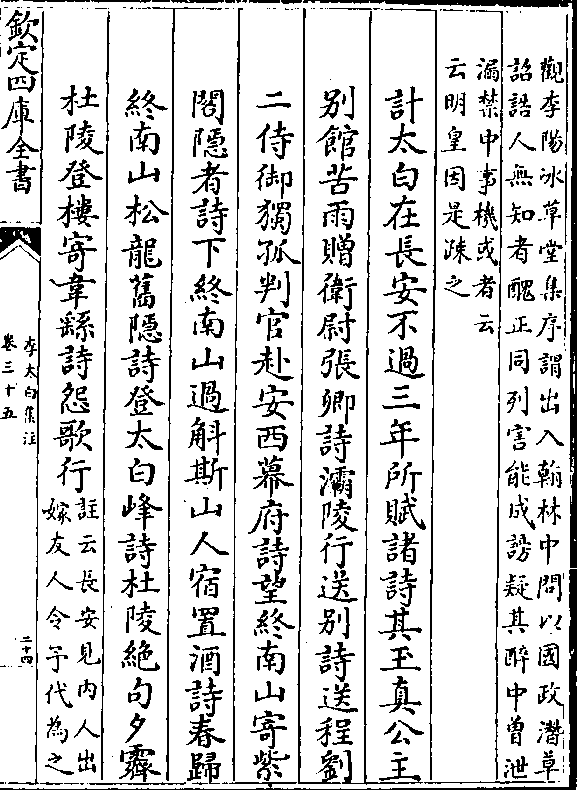 觀李陽冰草堂集序謂出入翰林中問以國政潛草
詔誥人無知者醜正同列害能成謗疑其醉中曾泄
漏禁中事機或者云
云明皇因是疎之
計太白在長安不過三年所賦諸詩其玉真公主
別館苦雨贈衛尉張卿詩灞陵行送別詩送程劉
二侍御獨孤判官赴安西幕府詩望終南山寄紫
閣隱者詩下終南山過斛斯山人宿置酒詩春歸
終南山松龍舊隱詩登太白峰詩杜陵絕句夕霽
杜陵登樓寄韋繇詩怨歌行
註云長安見內人出
嫁友人令予代為之
欽定四庫全書
李太白集注
卷三十五
二十四